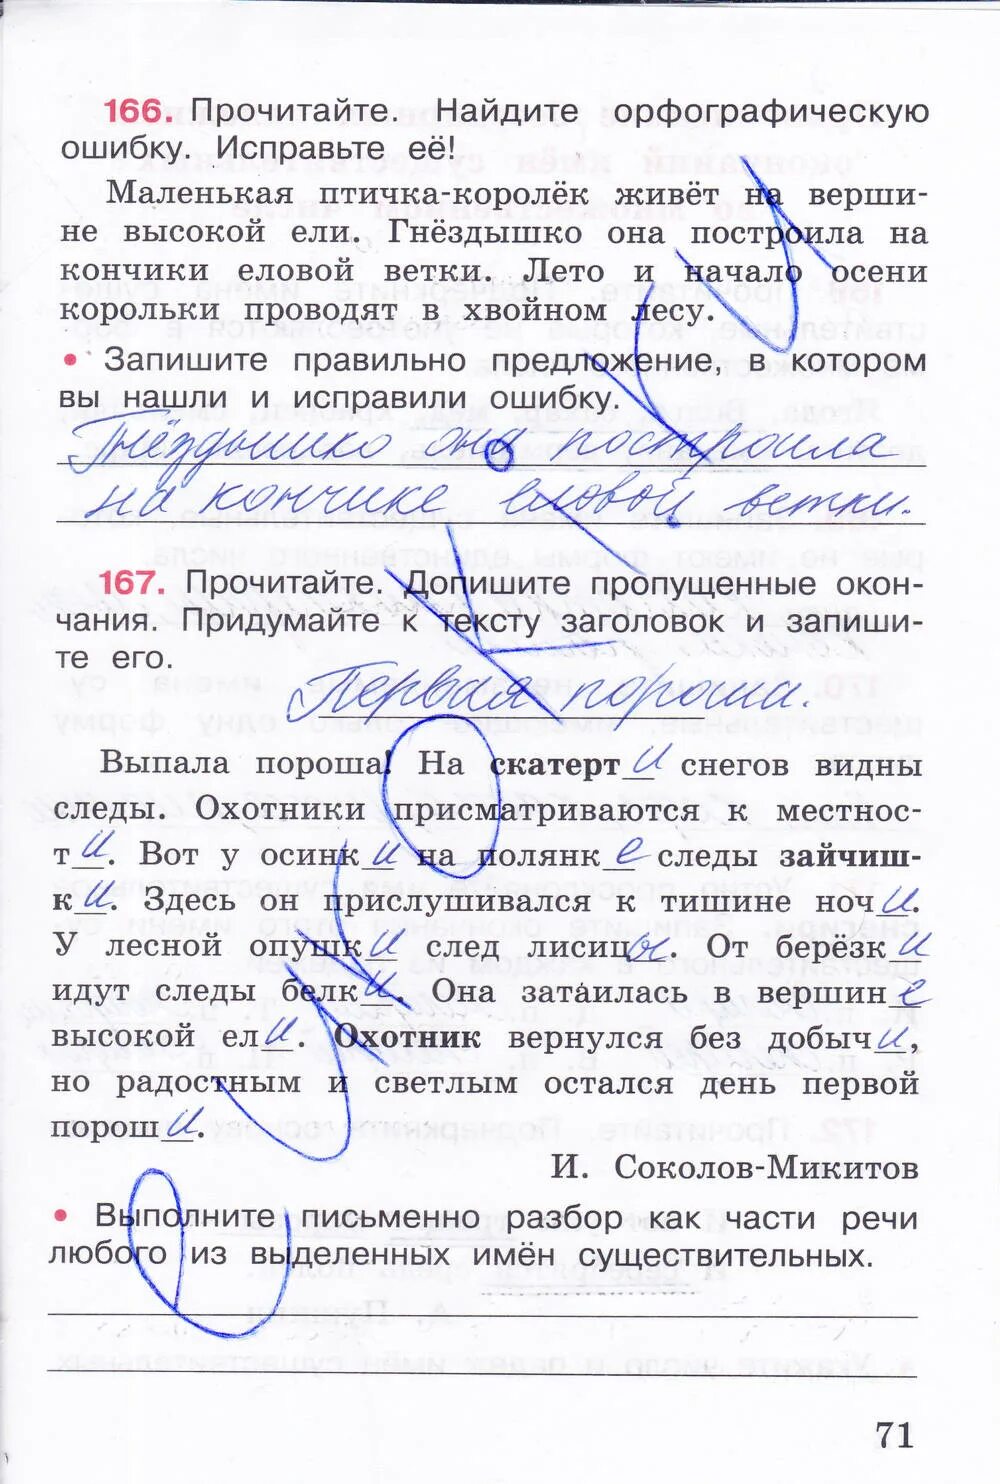 166. Прочитайте. Найдите орфографическую
ошибку. Исправьте её!
Маленькая птичка-королёк живёт на верши-
не высокой ели. Гнёздышко она построила на
кончики еловой ветки. Лето и начало осени
корольки проводят в хвойном лесу.
• Запишите правильно предложение, в котором
вы нашли и исправили ошибку.
Гнёздышко она построила
на кончике еловой ветки.
167. Прочитайте. Допишите пропущенные окон-
чания. Придумайте к тексту заголовок и запиши-
те его.
Первая пороша.
Выпала пороша! На скатерти снегов видны
следы. Охотники присматриваются к местнос-
ти. Вот у осинки на полянке следы зайчиш-
ки. Здесь он прислушивался к тишине ночи.
У лесной опушки след лисицы. От берёзки
идут следы белки. Она затаилась в вершине
высокой ели. Охотник вернулся без добычи,
но радостным и светлым остался день первой
пороши.
И. Соколов-Микитов
• Выполните письменно разбор как части речи
любого из выделенных имён существительных.
71